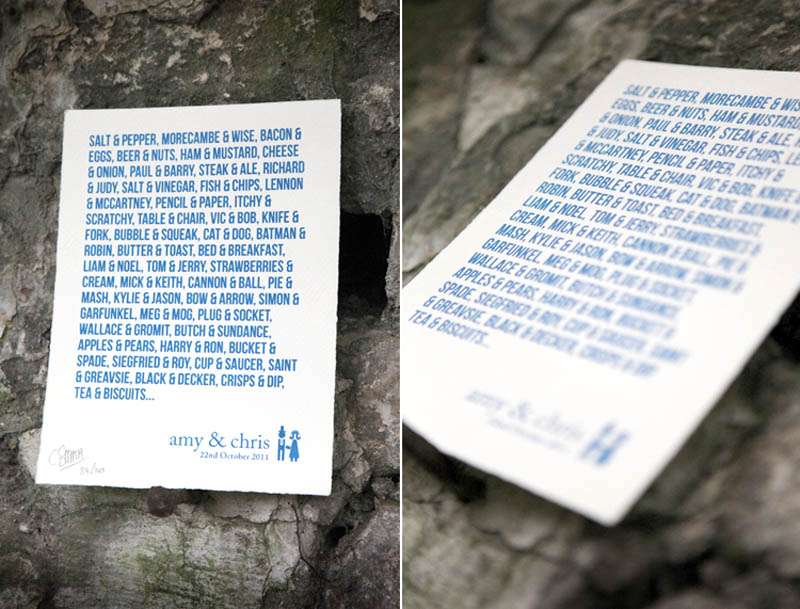 SALT & PEPPER, MORECAMBE & WISE, BACON &
EGGS, BEER & NUTS, HAM & MUSTARD, CHEESE
& ONION, PAUL & BARRY, STEAK & ALE, RICHARD
& JUDY, SALT & VINEGAR, FISH & CHIPS, LENNON
& MCCARTNEY, PENCIL & PAPER, ITCHY &
SCRATCHY, TABLE & CHAIR, VIC & BOB, KNIFE &
FORK, BUBBLE & SQUEAK, CAT & DOG, BATMAN &
ROBIN, BUTTER & TOAST, BED & BREAKFAST,
LIAM & NOEL, TOM & JERRY, STRAWBERRIES &
CREAM, MICK & KEITH, CANNON & BALL, PIE &
MASH, KYLIE & JASON, BOW & ARROW, SIMON &
GARFUNKEL, MEG & MOG, PLUG & SOCKET,
WALLACE & GROMIT, BUTCH & SUNDANCE,
APPLES & PEARS, HARRY & RON, BUCKET &
SPADE, SIEGFRIED & ROY, CUP & SAUCER, SAINT
& GREAVSIE, BLACK & DECKER, CRISPS & DIP,
TEA & BISCUITS...
amy & chris
22nd October 2011
SALT & PEPPER, MORECAMBE & WISE
EGGS, BEER & NUTS, HAM & MUSTARD
& ONION, PAUL & BARRY, STEAK & ALE
& JUDY, SALT & VINEGAR, FISH & CHIPS
& MCCARTNEY, PENCIL & PAPER, ITCHY &
SCRATCHY, TABLE & CHAIR, VIC & BOB, KNIFE &
FORK, BUBBLE & SQUEAK, CAT & DOG, BATMAN
ROBIN, BUTTER & TOAST, BED & BREAKFAST,
LIAM & NOEL, TOM & JERRY, STRAWBERRIES &
CREAM, MICK & KEITH, CANNON & BALL, PIE &
MASH, KYLIE & JASON, BOW & ARROW, SIMON
GARFUNKEL, MEG & MOG, PLUG & SOCKET,
WALLACE & GROMIT, BUTCH &
APPLES & PEARS, HARRY & RON, BUCKET &
SPADE, SIEGFRIED & ROY, CUP & SAUCER, SAINT
& GREAVSIE, BLACK & DECKER, CRISPS & DIP
TEA & BISCUITS...
amy & chris